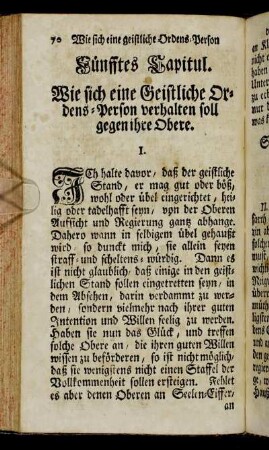 70 Wie sich eine geistliche Ordens-Person
Fünfftes Capitul.
Wie sich eine Geistliche Or-
dens-Person verhalten soll
gegen ihre Obere.
I.
ICh halte davor, daß der geistliche
Stand, er mag gut oder böß,
wohl oder übel eingerichtet, hei-
lig oder tadelhafft seyn, von der Oberen
Aufsicht und Regierung gantz abhange.
Dahero wann in selbigem übel gehaußt
wird, so dunckt mich, sie allein seyen
straff- und scheltens-würdig. Dann es
ist nicht glaublich, daß einige in den geist-
lichen Stand sollen eingetretten seyn, in
dem Absehen, darin verdammt zu wer-
den, sondern vielmehr nach ihrer guten
Intention und Willen seelig zu werden.
Haben sie nun das Glück, und treffen
solche Obere an, die ihren guten Willen
wissen zu beförderen, so ist nicht möglich,
daß sie wenigstens nicht einen Staffel der
Vollkommenheit sollen ersteigen. Fehlet
es aber denen Oberen an Seelen-Eiffer,
an